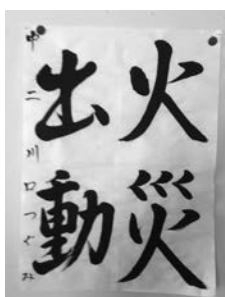 火災
出動
中二川口つぐみ